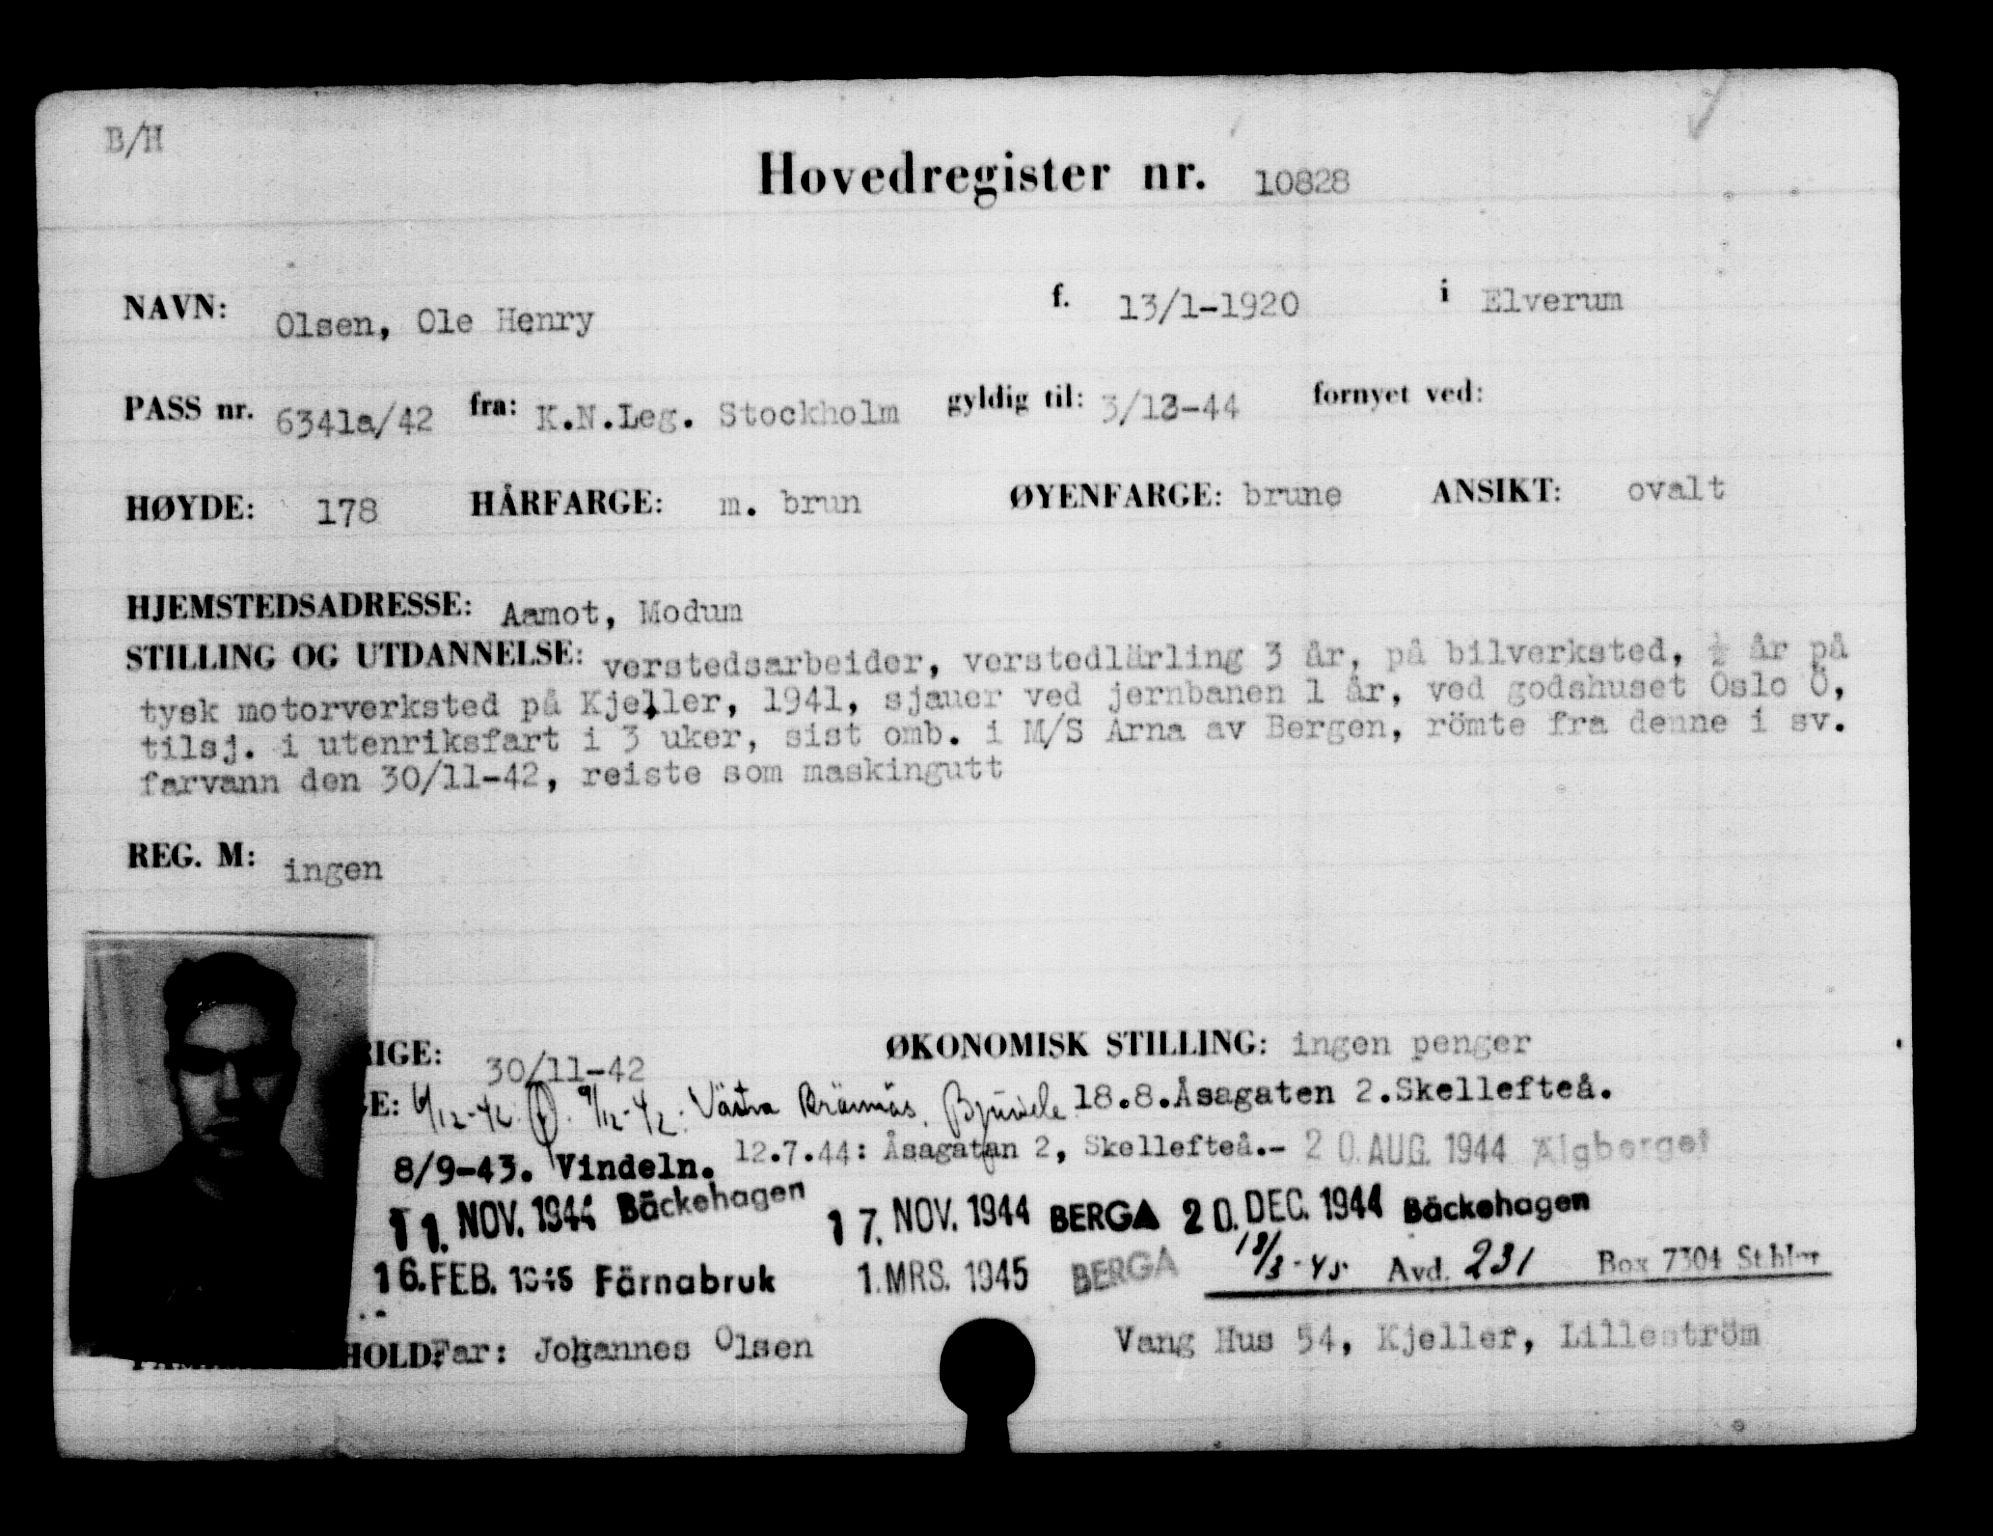 B/H
Hovedregister nr. 10828
NAVN: Olsen, Ole Henry f. 13/1-1920 i Elverum
PASS nr. 6341a/42 fra: K.N.Leg. Stockholm gyldig til: 3/12-44 fornyet ved:
HØYDE: 178 HÅRFARGE: m. brun ØYENFARGE: brune ANSIKT: ovalt
HJEMSTEDSADRESSE: Aamot, Modum
STILLING OG UTDANNELSE: verstedsarbeider, verstedlärling 3 år, på bilverksted, ½ år på
tysk motorverksted på Kjeller, 1941, sjauer ved jernbanen 1 år, ved godshuset Oslo Ö,
tilsj. i utenriksfart i 3 uker, sist omb. i M/S Arna av Bergen, römte fra denne i sv.
farvann den 30/11-42, reiste som maskingutt
REG. M: ingen
RIGE: 30/11-42 ØKONOMISK STILLING: ingen penger
E: 6/12-42. 9/12-42: Västra 18.8.Åsagaten 2.Skellefteå.
8/9-43. Vindeln. 12.7.44: Åsagatan 2, Skellefteå.- 20. AUG. 1944 Älgberget
11. NOV. 1944 Bäckehagen 17. NOV. 1944 BERGA 20. DEC. 1944 Bäckehagen
16. FEB. 1945 Färnabruk 1. MRS. 1945 BERGA 18/3-45 Avd. 231 Box 7304 Sthlm
HOLD: Far: Johannes Olsen Vang Hus 54, Kjeller, Lilleström